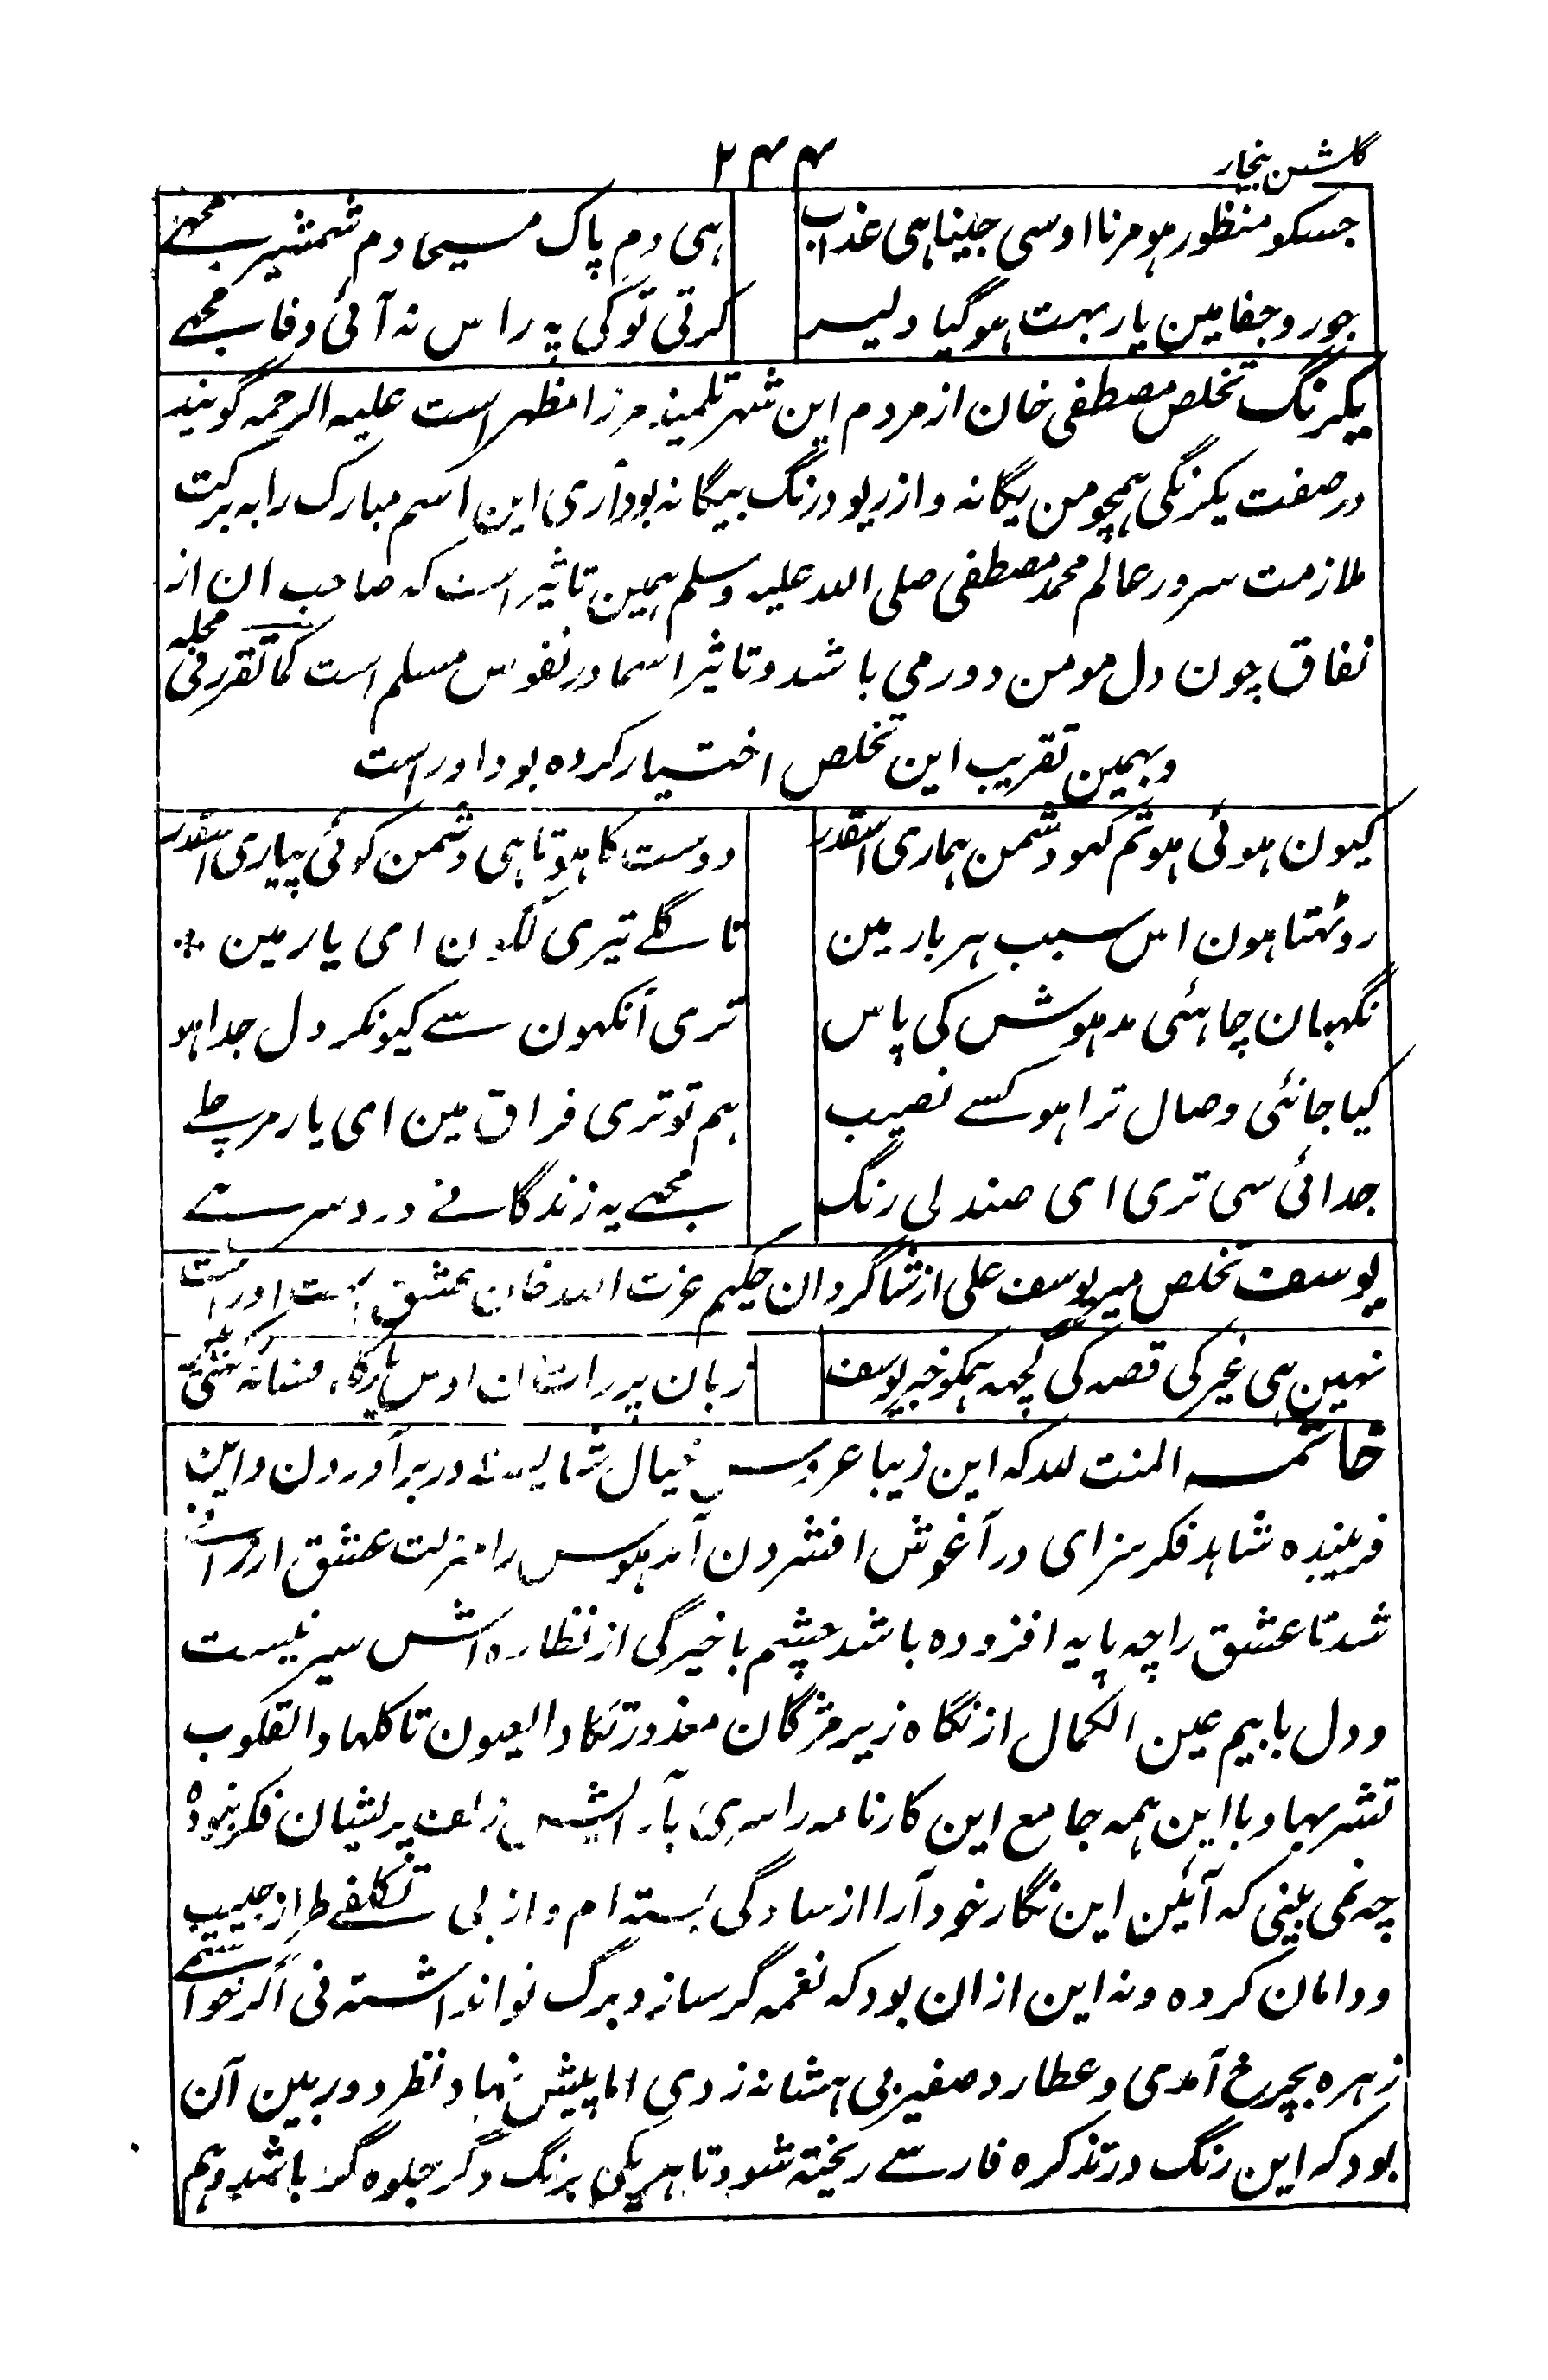 گلشن بیخار
۲۴۴
جسکو منظور ہو مرنا اوسی جینا ہی عذاب
ہی دم پاک مسیحا دم شمشیر مجہے
جور و جفا مین یار بہت ہو گیا دلیر
کرتی تو کی پہ راس نہ آئی وفا مجہے
یکرنگ تخلص مصطفی خان از مردم این شہر تلمیذ مرزا مظہر است علیہ الرحمہ گویند
در صفت یکرنگی ہمچو من یگانہ و از ریو و رنگ بیگانہ بود آری این اسم مبارک را بہ برکت
ملازمت سرور عالم محمد مصطفی صلی اللہ علیہ وسلم ہمین تاثیر است کہ صاحب ان از
نفاق چون دل مومن دور می باشد و تاثیر اسما در نفوس مسلم است کما تقرر فی محلہ
و بہمین تقریب این تخلص اختیار کردہ بود اور است
کیون ہوئی ہو تم کہو دشمن ہماری اسقدر
دوست کا ہوتا ہی دشمن کوئی پیاری اسقدر
روٹہتا ہون اس سبب ہر بار مین
تا گلے تیری لگون ای یار مین
نگہبان چاہئی مدہوش کی پاس
تری آنکہون سے کیونکر دل جدا ہو
کیا جانئی وصال ترا ہو کسے نصیب
ہم تو تری فراق مین ای یار مر چلے
جدائی سی تری ای صندلی رنگ
مجہے یہ زندگانے درد سر ہے
یوسف تخلص میر یوسف علی از شاگردان حکیم عزت اللہ خان عشق است اور است
نہین ہی غیر کی قصہ کی کچہہ ہمکو خبر یوسف
زبان پر رات دن اوس یار کا افسانہ
خاتمہ المنت للہ کہ این زیبا عروس خیال شایستہ در بر آوردن و این
فریبندہ شاہد فکر سزای در آغوش افشردن آمد ہوس را منزلت عشق ارزان
شد تا عشق را چہ پایہ افزودہ باشد چشم با خیرگی از نظارہ اش سیر نیست
و دل با بیم عین الکمال از نگاہ زیر مژگان معذور تکاد العیون تاکلہا والقلوب
تشربہا و با این ہمہ جامع این کارنامہ را سری بآرایش زلف پریشان فکر نبودہ
چہ نمی بینی کہ آئین این نگار خود آرا از سادگی بستہ ام و از بی تکلفے طراز جیب
و دامان کردہ و نہ این از ان بود کہ نغمہ گر ساز و برگ نوا نداشتہ نی اگر خواستمے
زہرہ بچرخ آمدی و عطارد صفیر بی ہشانہ زدی اما پیش نہاد نظر دور بین آن
بود کہ این رنگ در تذکرہ فارسے ریختہ شود تا ہر یکی برنگ دگر جلوہ گر باشد و ہم